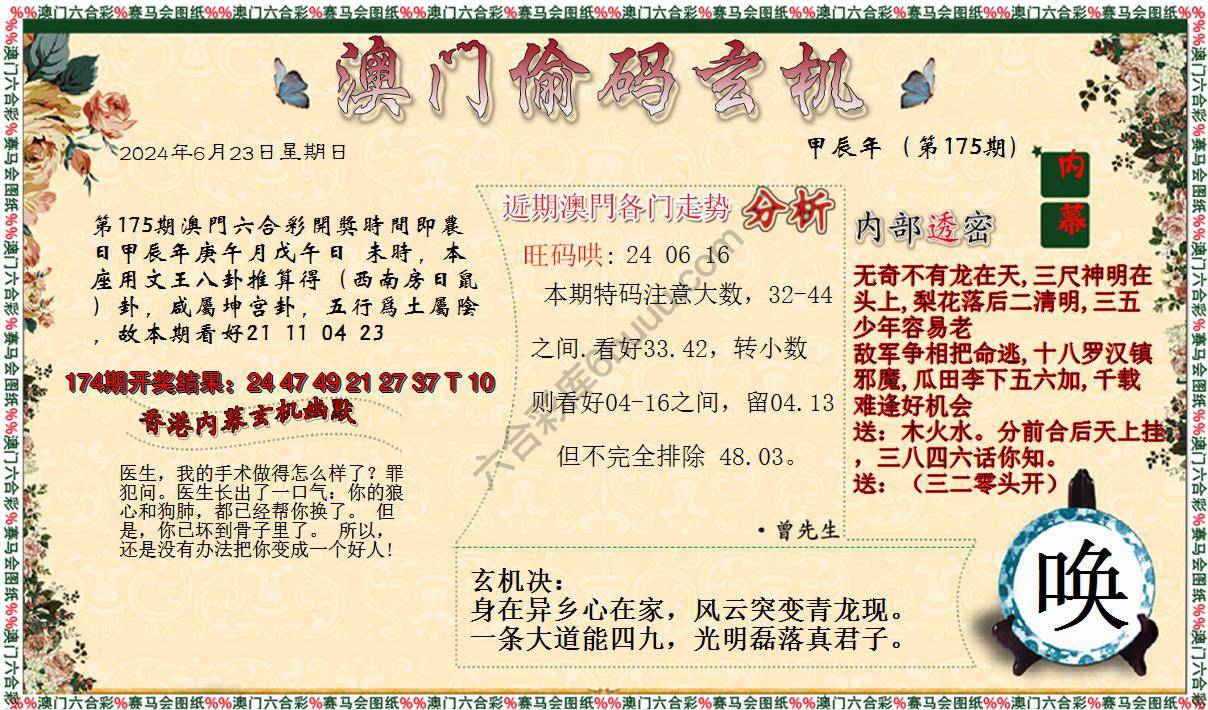 %%澳门六合彩%赛马会图纸%%澳门六合彩%赛马会图纸%%澳门六合彩%赛马会图纸%%澳门六合彩%赛马会图纸%%澳门六合彩%赛马会图纸%%澳门六合彩%赛马会图纸%%
澳门偷码玄机
2024年6月23日星期日
甲辰年（第175期）
内幕
第175期澳門六合彩開獎時間即農
日甲辰年庚午月戊午日 未時，本
座用文王八卦推算得（西南房日鼠
）卦，咸屬坤宫卦，五行爲土屬陰
，故本期看好21 11 04 23
174期开奖结果：24 47 49 21 27 37 T 10
香港内幕玄机幽默
医生，我的手术做得怎么样了？罪
犯问。医生长出了一口气：你的狼
心和狗肺，都已经帮你换了。 但
是，你已坏到骨子里了。 所以，
还是没有办法把你变成一个好人！
近期澳門各门走势 分析
旺码哄: 24 06 16
本期特码注意大数，32-44
之间.看好33.42，转小数
则看好04-16之间，留04.13
但不完全排除 48.03。
·曾先生
内部透密
无奇不有龙在天,三尺神明在
头上,梨花落后二清明,三五
少年容易老
敌军争相把命逃,十八罗汉镇
邪魔,瓜田李下五六加,千载
难逢好机会
送：木火水。分前合后天上挂
，三八四六话你知。
送：（三二零头开）
玄机决：
身在异乡心在家，风云突变青龙现。
一条大道能四九，光明磊落真君子。
唤
%%澳门六合彩%赛马会图纸%%澳门六合彩%赛马会图纸%%澳门六合彩%赛马会图纸%%澳门六合彩%赛马会图纸%%澳门六合彩%赛马会图纸%%澳门六合彩%赛马会图纸%%